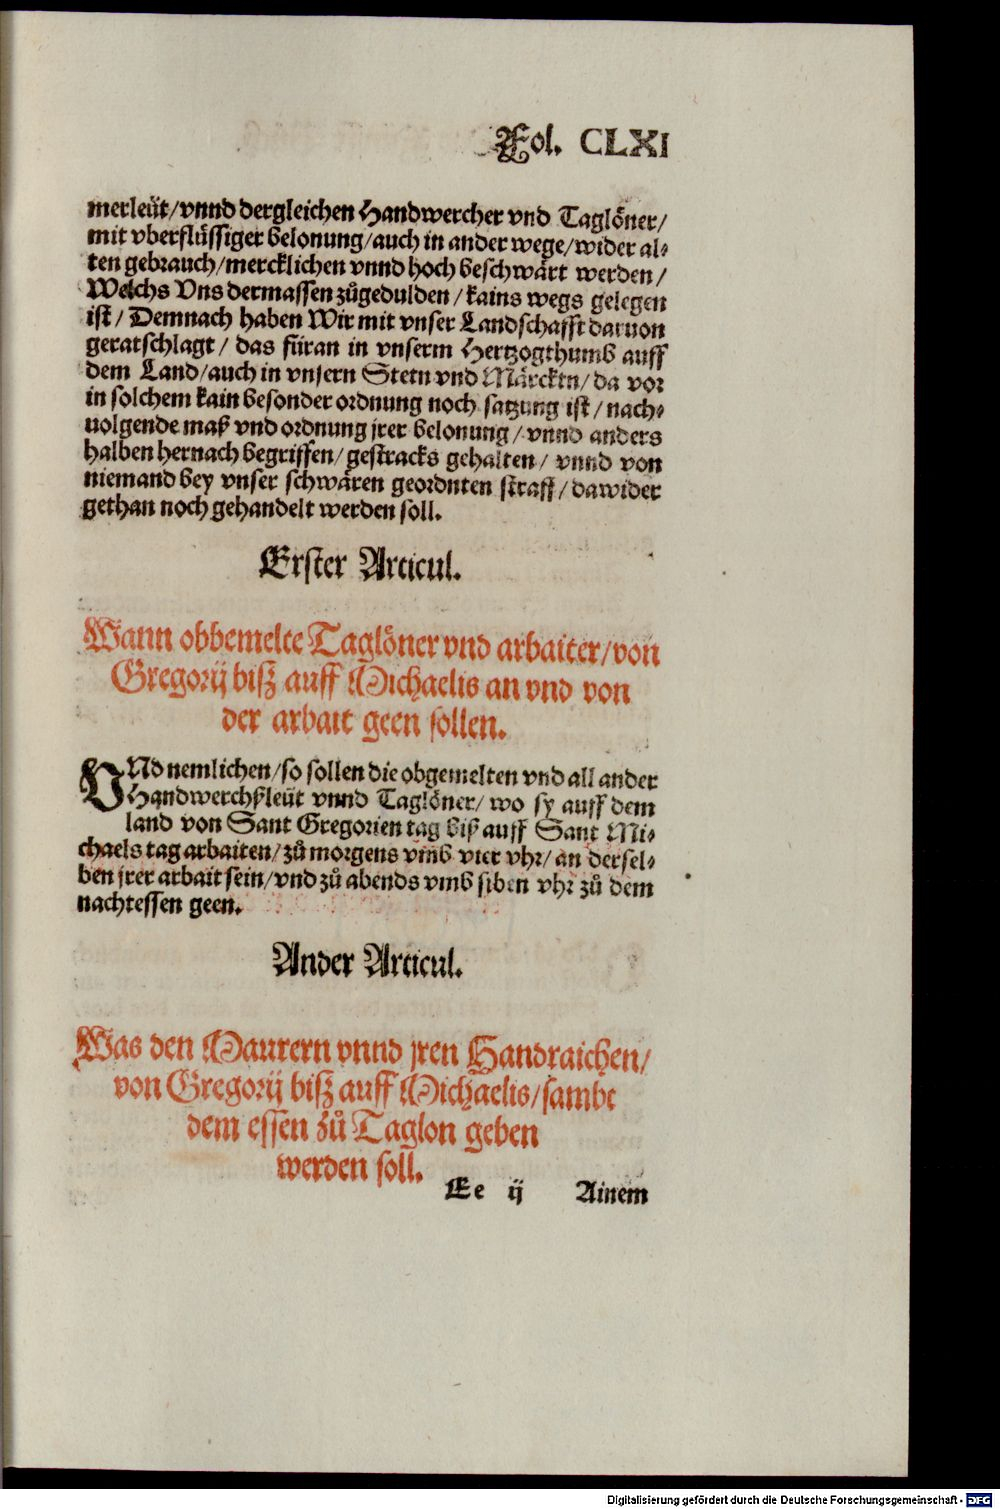 Fol. CLXI
merleüt/vnnd dergleichen Handwercher vnd Taglöner/
mit vberflüssiger belonung/auch in ander wege/wider al⸗
ten gebrauch/mercklichen vnnd hoch beschwärt werden/
Welchs Vns dermassen zůgedulden/kains wegs gelegen
ist/Demnach haben Wir mit vnser Landschafft daruon
geratschlagt/das füran in vnserm Hertzogthumb auff
dem Land/auch in vnsern Stetn vnd Märcktn/da vor
in solchem kain besonder ordnung noch satzung ist/nach⸗
uolgende maß vnd ordnung jrer belonung/vnnd anders
halben hernach begriffen/gestracks gehalten/vnnd von
niemand bey vnser schwären geordnten straff/dawider
gethan noch gehandelt werden soll.
Erster Articul.
Wann obbemelte Taglöner vnd arbaiter/von
Gregorij bisz auff Michaelis an vnd von
der arbait geen sollen.
VNd nemlichen/so sollen die obgemelten vnd all ander
Handwerchßleüt vnnd Taglöner/wo sy auff dem
land von Sant Gregorien tag biß auff Sant Mi⸗
chaels tag arbaiten/zů morgens vmb vier vhr/an dersel⸗
ben jrer arbait sein/vnd zů abends vmb siben vhr zů dem
nachtessen geen.
Ander Articul.
Was den Maurern vnnd jren Handraichen/
von Gregorij bisz auff Michaelis/sambt
dem essen zů Taglon geben
werden soll.
Ee ij Ainem
Digitalisierung gefördert durch die Deutsche Forschungsgemeinschaft - DFG